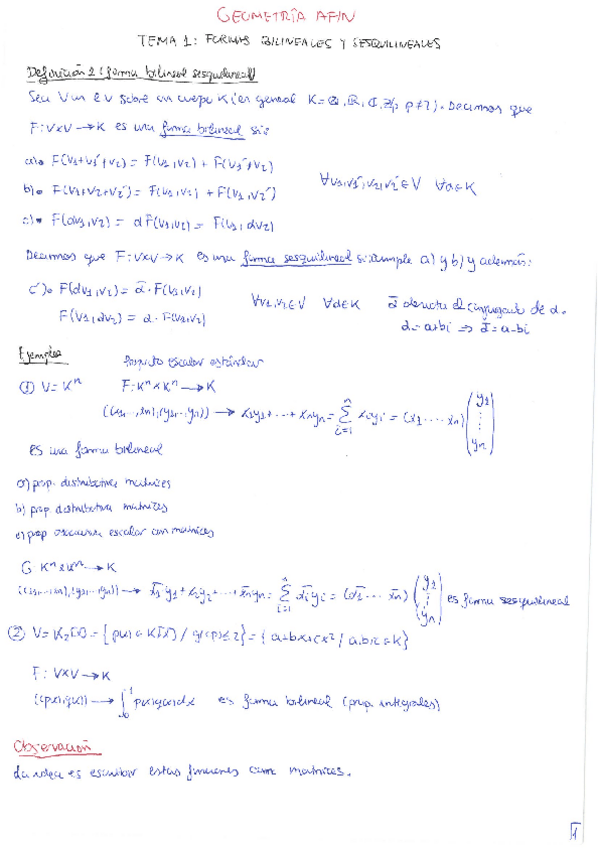 GEOMETRÍA AFÍN
TEMA 1: FORMAS BILINEALES Y SESQUILINEALES
Definición 1 (forma bilineal sesquilineal)
Sea V un e.v sobre un cuerpo K (en general K = Q, R, C, Z/p p≠2). Decimos que
F: V×V → K es una forma bilineal si:
a) • F(v₁+v₁', v₂) = F(v₁,v₂) + F(v₁',v₂)
b) • F(v₁, v₂+v₂') = F(v₁,v₂) + F(v₁,v₂') ∀v₁,v₁',v₂,v₂' ∈ V ∀α ∈ K
c) • F(αv₁,v₂) = αF(v₁,v₂) = F(v₁,αv₂)
Decimos que F: V×V → K es una forma sesquilineal si cumple a) y b) y además:
c') • F(αv₁,v₂) = ᾱ · F(v₁,v₂)
F(v₁,αv₂) = α · F(v₁,v₂) ∀v₁,v₂ ∈ V ∀α ∈ K ᾱ denota el conjugado de α.
α = a+bi ⇒ ᾱ = a-bi
Ejemplos Producto escalar estándar
① V = Kⁿ F: Kⁿ×Kⁿ → K
((x₁,...,xₙ),(y₁,...,yₙ)) → x₁y₁+...+xₙyₙ = ∑ᵢ₌₁ⁿ xᵢyᵢ = (x₁ ... xₙ) (y₁ ⋮ yₙ)
es una forma bilineal
a) prop. distributiva matrices
b) prop distributiva matrices
c) prop escalar con matrices
G Kⁿ×Kⁿ → K
((x₁,...,xₙ),(y₁,...,yₙ)) → x̄₁y₁+x̄₂y₂+...+x̄ₙyₙ = ∑ᵢ₌₁ⁿ x̄ᵢyᵢ = (x̄₁ ... x̄ₙ) (y₁ ⋮ yₙ) es forma sesquilineal
② V = K₂[X] = {p(x) ∈ K[X] / gr(p) ≤ 2} = {a+bx+cx² / a,b,c ∈ K}
F: V×V → K
(p(x),q(x)) → ∫₀¹ p(x)q(x)dx es forma bilineal (prop. integrales)
Observación
La idea es escribir estas funciones como matrices.
1